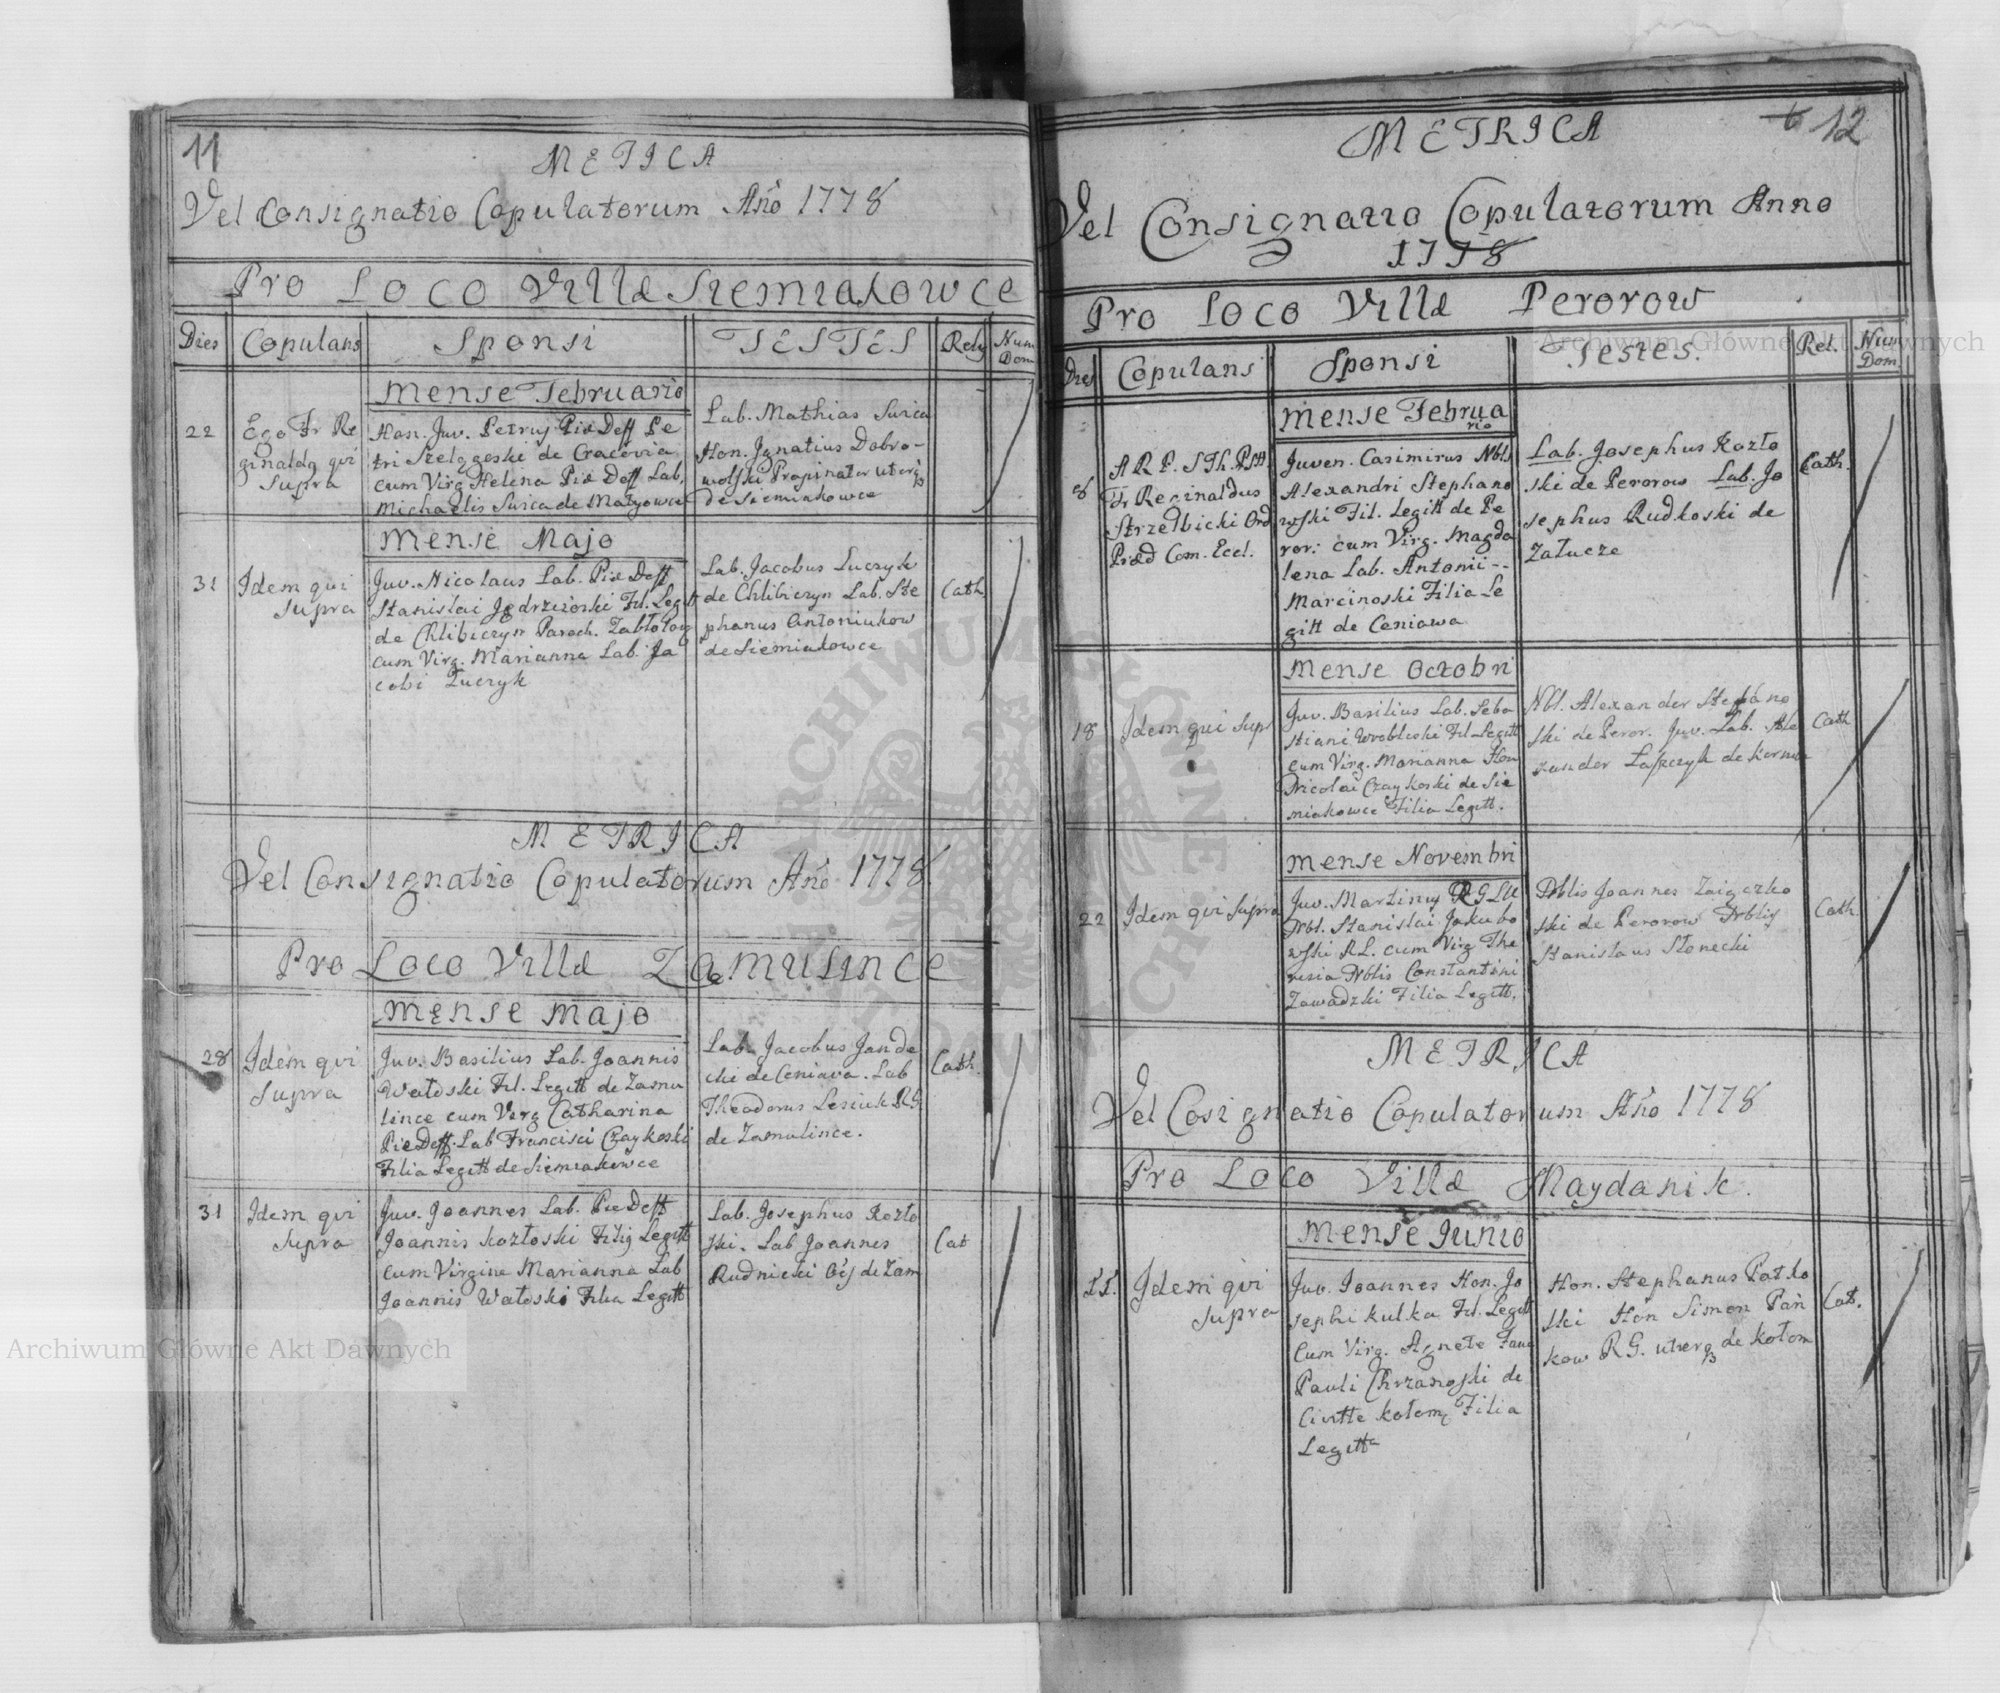 11
METICA
Vel Consignatio Copulatorum Año 1778
Pro Loco Villæ Siemiakowce
Dies Copulans Sponsi TESTES Rely Num Dom
Mense Februario
22
Ego Fr Re
ginaldq qui
supra
Hon. Juv. Petrus Piæ Deff Pe
tri Szelągoski de Cracovia
cum Virg Helena Piæ Deff Lab.
Michaelis Surica de Matyowce
Lab. Mathias Surica
Hon. Jgnatius Dobro-
wolski Propinator uterq
de Siemiakowce
Mense Majo
31
Idem qui
supra
Juv. Nicolaus Lab. Piæ Deff
Stanislai Jędrzeioski Fil. Legit
de Chlibiczyn Paroch. Zabłotow
cum Virg. Marianna Lab. Ja
cobi Łuczyk
Lab. Jacobus Łuczyk
de Chlibiczyn Lab. Ste
phanus Antoniukow
de Siemiakowce
Cath
METRICA
Vel Consignatio Copulatorum Año 1778
Pro Loco Villæ Zamulince
Mense Majo
28
Idem qui
supra
Juv. Basilius Lab. Joannis
Wałoski Fil. Legitt de Zamu
lince cum Virg Catharina
Piæ Deff. Lab Francisci Czaykoski
Filia Legitt de Siemiakowce
Lab. Jacobus Jande
cki de Ceniava. Lab
Theodorus Lesiuk R.G
de Zamulince.
Cath.
31
Idem qui
supra
Juv. Joannes Lab. Piæ Deff
Joannis Kozłoski Filiq Legitt
cum Virgine Marianna Lab
Joannis Wałoski Filia Legitt
Lab. Josephus Kozło
ski. Lab Joannes
Rudnicki de Zam
Cat
12
METRICA
Vel Consignatio Copulatorum Anno
1778
Pro Loco Villæ Perorow
Dies Copulans Sponsi Testes. Rel. Num Dom.
Mense Februa
rio
8
A R P. S Th.
Fr Reginaldus
Strzelbicki Ord
Præd Com. Eccl.
Juven. Casimirus Nbls
Alexandri Stephano
wski Fil. Legitt de Pe
ror: cum Virg. Magda
lena Lab. Antonii -
Marcinoski Filia Le
gitt de Ceniawa
Lab. Josephus Kozło
ski de Perorow Lab. Jo
sephus Rudkoski de
Załucze
Cath.
Mense Octobri
18
Idem qui sup
Juv. Basilius Lab. Seba
stiani Wrobleski Fil Legitt
cum Virg. Marianna Hon
Nicolai Czaykoski de Sie
miakowce Filia Legitt.
Nbl. Alexander Stepháno
ski de Peror. Juv. Lab. Ale
xander
Cath
Mense Novembri
22
Idem qui supra
Juv. Martinus R G LU
Nbl. Stanislai Jakubo
wski R L. cum Virg The
resia Nblis Constantini
Zawadzki Filia Legitt.
Nblis Joannes Zaiączko
ski de Perorow Nblis
Stanislaus Słonecki
Cath.
METRICA
Vel Cosignatio Copulatorum Año 1778
Pro Loco Villæ Maydanik.
Mense Junio
Idem qui
supra
Juv. Joannes Hon. Jo
sephi Kulka Fil. Legitt
Cum Virg. Agnete
Pauli Chrzanoski de
Civtte Kołom, Filia
Legitta
Hon. Stephanus Patko
ski Hon Simon Pań
kow R G. uterq de Kołom
Cat.
Archiwum Główne Akt Dawnych
Archiwum Główne Akt Dawnych